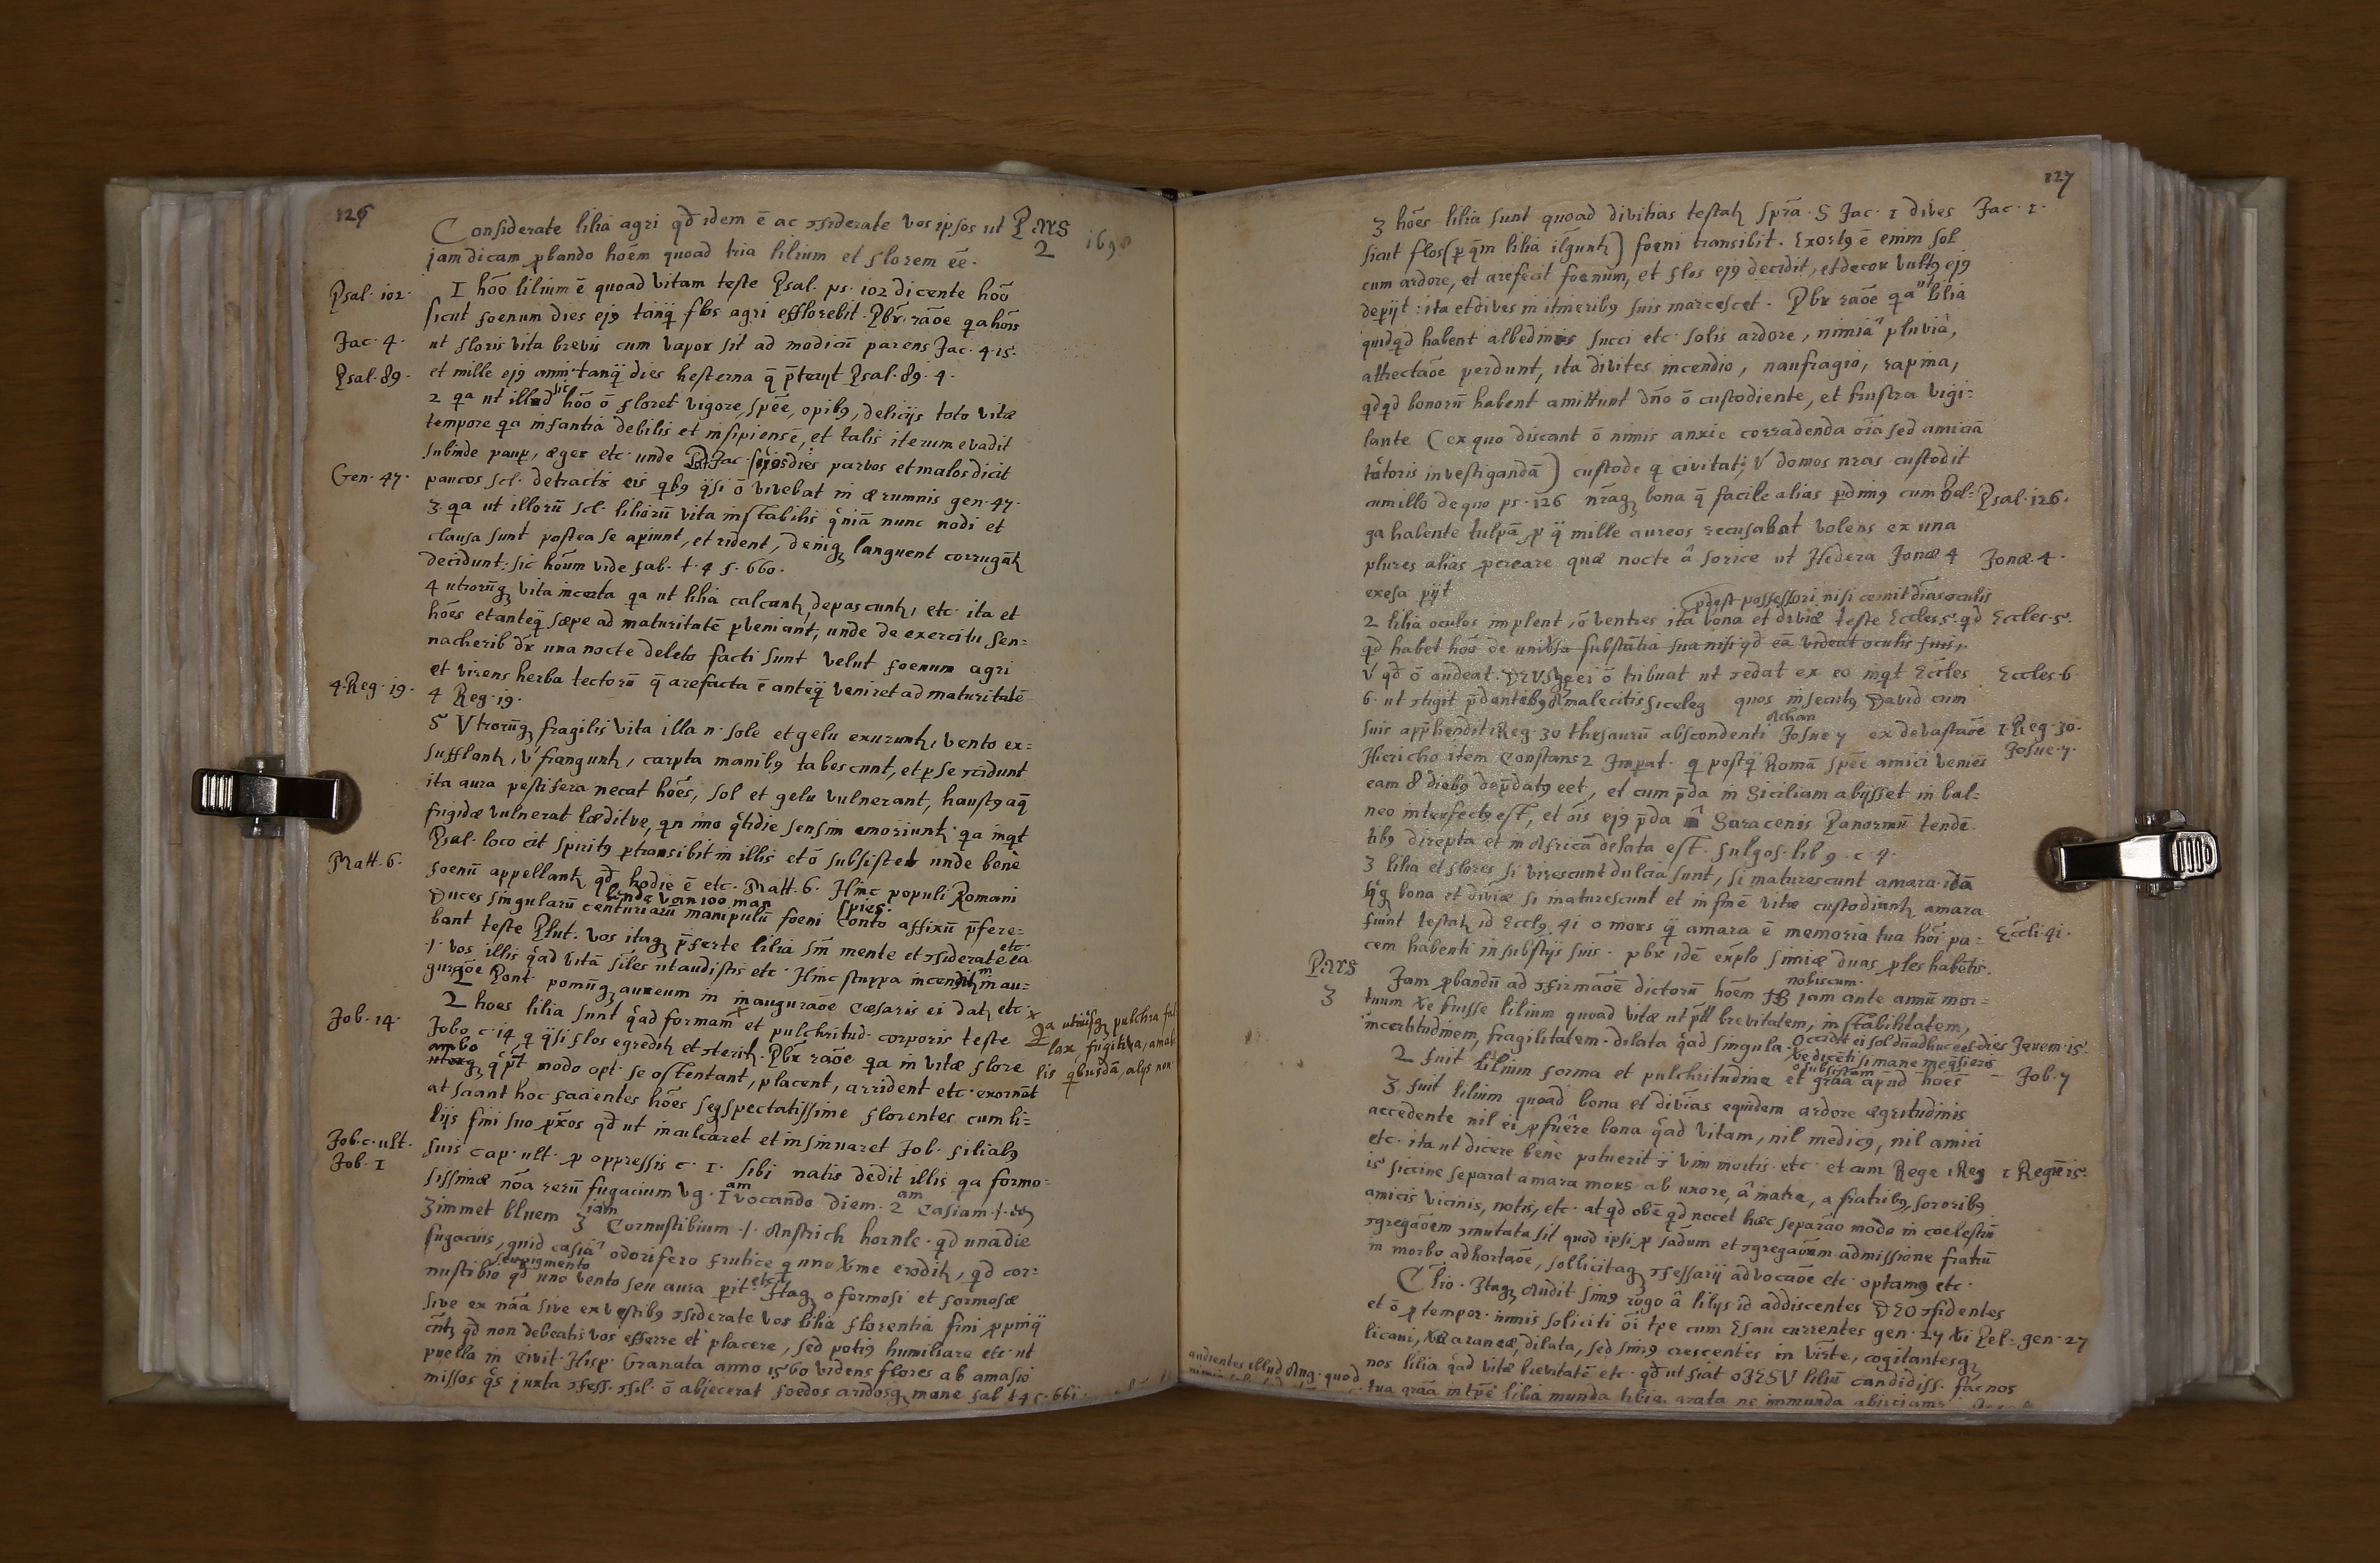 126
Considerate lilia agri qd̄ idem ē ac ꝯsiderate vos ipsos ut Pars
jam dicam ꝓbando hoēm quoad tria lilium et florem eē. 2
Psal. 102. I hoō lilium ē quoad vitam teste Psal. ps. 102 dicente hoō
sicut foenum dies ejꝯ tanq̄ flos agri efflorebit. Pbr̄ raōe qa hoīs
Jac. 4. ut floris vita brevis cum vapor sit ad modicū parens Jac. 4. 15.
Psal. 89. et mille ejꝯ anni tanq̄ dies hesterna q̄ p̄teriit Psal. 89. 4.
2 qa ut hoō ō floret vigore, spēe, opibꝯ, delicijs toto vitæ
tempore qa infantia debilis et insipiens ē, et talis iterum evadit
subinde paup, æger etc. unde Jac. dies parvos et malos dicit
Gen. 47. paucos scl. detractis eis qbꝯ qsi ō vivebat in ærumnis gen. 47.
3 qa ut illorū scl. liliorū vita instabilis qniā nunc nodi et
clausa sunt postea se apiunt, et rident, deniqꝫ languent corrugāt
decidunt: sic hoūm vide fab. t. 4 f. 660.
4 utrorūqꝫ vita incerta qa ut lilia calcant, depascunt, etc. ita et
hoēs et anteq̄ sæpe ad maturitatē ꝑveniant, unde de exercitu Sen=
nacherib dr̄ una nocte deleto facti sunt velut foenum agri
et virens herba tectorū q̄ arefacta ē anteq̄ veniret ad maturitatē
4. Reg. 19. 4 Reg. 19.
5 Utrorūqꝫ fragilis vita illa n. sole et gelu exurunt, vento ex=
sufflant, v̄ frangunt, carpta manibꝯ tabescunt, et p se ꝯcidunt
ita aura pestifera necat hoēs, sol et gelu vulnerant, haustꝯ aq̄
frigidæ vulnerat læditve, qn imo qtidie sensim emoriunt qa inqt
Psal. loco cit spiritꝯ ꝑtransibit in illis et ō subsistet unde benè
Matt. 6. foenū appellant qd̄ hodie ē etc. Matt. 6. Hinc populi Romani
bende van 100 man spies.
Duces singularū centuriarū manipulū foeni conto affixū p̄fere=
bant teste Plut. vos itaqꝫ p̄ferte lilia sm̄ mente et ꝯsiderate ea etc.
.|. vos illis qad vitā siles ut audistis etc. Hinc stuppa incendit in au=
guraōe Pont. pomūqꝫ aureum in inauguraōe Cæsaris ei dat etc.
2 hoes lilia sunt qad formam et pulchritud. corporis teste
Job. 14. Jobo c. 14, q qsi flos egredit et ꝯterit. Pbr̄ raōe qa in vitæ flore
Qa utriusqꝫ pulchra
lax, fugitiva, amab
lis qbusdā, alijs non
ambo
modo opt. se ostentant, placent, arrident etc. exornāt
at sciant hoc facientes hoēs seqꝫ spectatissime florentes cum li=
lijs fini suo pxos qd̄ ut inculcaret et insinuaret Job. filiabꝯ
Job. c. ult. suis cap. ult. p oppressis c. 1. sibi natis dedit illis qa formo=
Job. 1 sissimæ noā rerū fugacium vg. 1am vocando diem. 2am Casiam .|.
Zimmet bluem 3iam Cornustibium .|. Anstrich hornle. qd̄ una die
fugacius, quid casiā odorifero frutice q uno erodit, qd cor=
seu pigmento
nustibio qd̄ uno vento seu aura pit etc. Itaqꝫ o formosi et formosæ
sive ex naā sive ex vestibꝯ ꝯsiderate vos lilia florentia fini ꝓpinq̄
qd non debeatis vos efferre et placere, sed potiꝯ humiliare etc. ut
puella in Civit. Hisp. Granata anno 1560 videns flores ab amasio
missos qs juxta ꝯfess. ꝯsil. ō abjecerat foedos aridosqꝫ mane fab t 4 f. 661.
127
3 hoēs lilia sunt quoad divitias testat spra. S Jac. 1 dives Jac. 1.
sicut flos (p qm lilia illgunt) foeni transibit. Exortꝯ ē enim sol
cum ardore, et arefecit foenum, et flos ejꝯ decidit, et decor vultꝯ ejꝯ
deperijt: ita et dives in itineribꝯ suis marcescet. Pbr raōe qa ut lilia
quidqd habent albedinis succi etc. solis ardore, nimiâ pluviâ,
attrectaōe perdunt, ita divites incendio, naufragio, rapina,
qdqd bonorū habent amittunt dno ō custodiente, et frustra vigi=
lante (ex quo discant ō nimis anxie corradenda oīa sed amicā
tatoris investigandā) custode q civitatē v̄ domos nras custodit
cum illo de quo ps. 126 nraqꝫ bona q̄ facile alias pdimꝯ cum Bel= Psal. 126.
ga habente tulpā, p q̄ mille aureos recusabat volens ex una
plures alias ꝓcreare quæ nocte â sorice ut Hedera Jonæ 4 Jonæ. 4.
exesa pijt
pdest possessori nisi cernit dīas oculis
2 lilia oculos implent, ō ventres ita bona et diviæ teste Eccles. 5. qd Eccles. 5.
qd habet hoō de univsa substātia sua nisi qd eā videat oculis suis,
v̄ qd ō audeat. DEUSqꝫ ei ō tribuat ut redat ex eo inqt Eccles Eccles. 6
6. ut ꝯtigit p̄dantibꝯ Amalecitis Siceleg quos insecutꝯ David cum
Achan
suis app̄hendit 1 Reg. 30 thesaurū abscondenti Josue 7 ex devastaōe 1. Reg. 30.
Hiericho item Constans 2 Imperat. q postq̄ Romā spēe amici veniēs Josue. 7.
eam 8 diebꝯ dep̄datꝯ eet, et cum p̄da in Siciliam abijsset in bal=
neo interfectꝯ est, et oīs ejꝯ p̄da â Saracenis Panormū tendē.
tibꝯ direpta et in Africā delata est. fulgos. lib 9. c. 4.
3 lilia et flores si virescunt dulcia sunt, si maturescunt amara itā
bona et diviæ si maturescunt et in finē vitæ custodiunt, amara
fiunt testat id Eccls 41 o mors q̄ amara ē memoria tua hoī pa= Eccli. 41.
cem habenti in substijs suis. pbr idē explo simiæ duas ples habētis.
Pars Jam ꝓbandū ad ꝯfirmaōē dictorū hoēm nobiscum jam ante annū mor=
3 tuum Xe fuisse lilium quoad vitæ ut pti brevitatem, instabilitatem,
incertitudinem, fragilitatem. dilata qad singula. Occidit ei sol dū adhuc eet dies Jerem. 15.
Ve diceti si mane me qsieris
2 fuit lilium forma et pulchritudine et graā apud hoēs ō subsistam Job. 7
3 fuit lilium quoad bona et divias equidem ardore ægritudinis
accedente nil ei pfuêre bona qad vitam, nil medicꝯ, nil amici
etc. ita ut dicere benè potuerit vim mortis etc. et cum Rege 1 Reg 1 Regū 15.
15 siccine separat amara mors ab uxore, â matre, a fratribꝯ, sororibꝯ
amicis vicinis, notis, etc. at qd obē qd nocet hæc separāo modo in coelestiū
ꝯgregaōem ꝯmutata sit quod ipsi p sadum et ꝯgregaōem admissione fratrū
in morbo adhortaōe, sollicitaqꝫ ꝯfessarij advocaōe etc. optamꝯ etc.
Clio. Itaqꝫ Audit. simꝯ rōgo â lilijs id addiscentes DEO ꝯfidentes
et ō p tempor. nimis soliciti oī tpe cum Esau currentes gen. 27 Xi Pel= gen. 27
licani, araneæ, dilata, sed simꝯ crescentes in virte, cogitantesqꝫ
nos lilia qad vitæ brevitatē etc. qd̄ ut fiat o JESU liliū candidiss. fac nos
tua graā lilia munda tibiqꝫ grata ne immunda abijciamꝯ
audientes illud Aug. quod